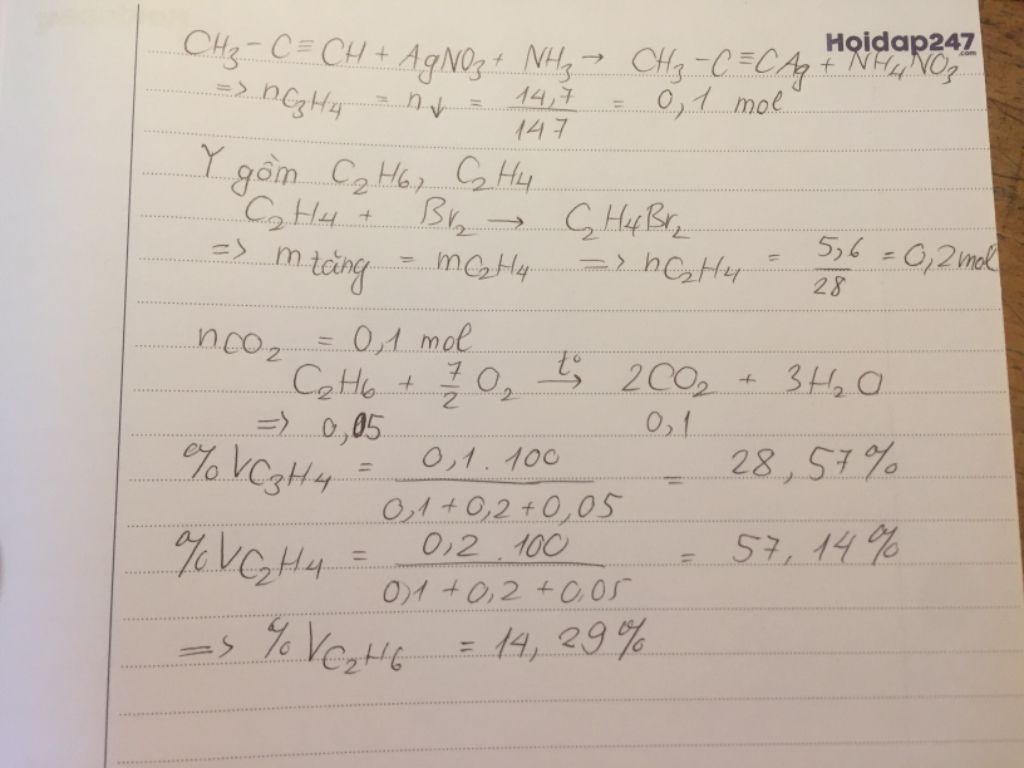 Hoidap247
.com
CH3 - C ≡ CH + AgNO3 + NH3 → CH3 - C ≡ CAg + NH4NO3
=> nC3H4 = n↓ = 14,7 / 147 = 0,1 mol
Y gồm C2H6, C2H4
C2H4 + Br2 → C2H4Br2
=> m tăng = mC2H4 => nC2H4 = 5,6 / 28 = 0,2 mol
nCO2 = 0,1 mol
C2H6 + 7/2 O2 t°→ 2CO2 + 3H2O
=> 0,05 0,1
%VC3H4 = 0,1 . 100 / 0,1 + 0,2 + 0,05 = 28,57%
%VC2H4 = 0,2 . 100 / 0,1 + 0,2 + 0,05 = 57,14%
=> %VC2H6 = 14,29%